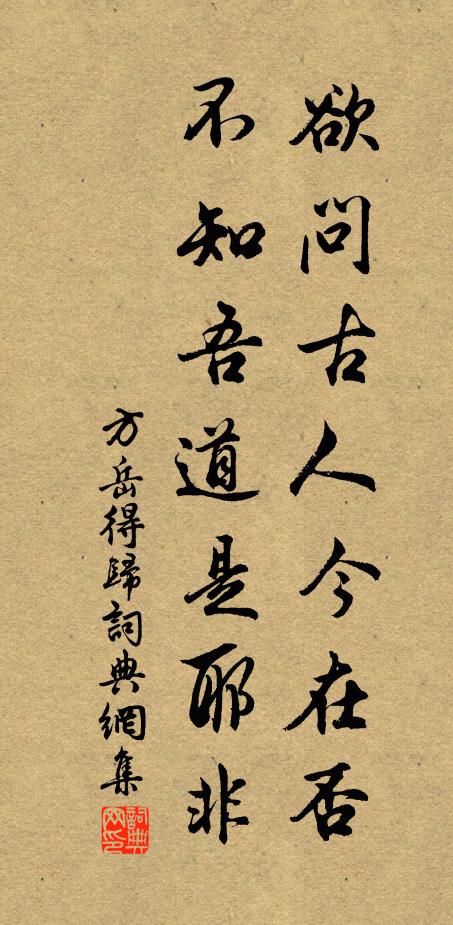 欲問古人今在否
不知吾道是耶非
方岳得歸詞典網集
詞典
网印